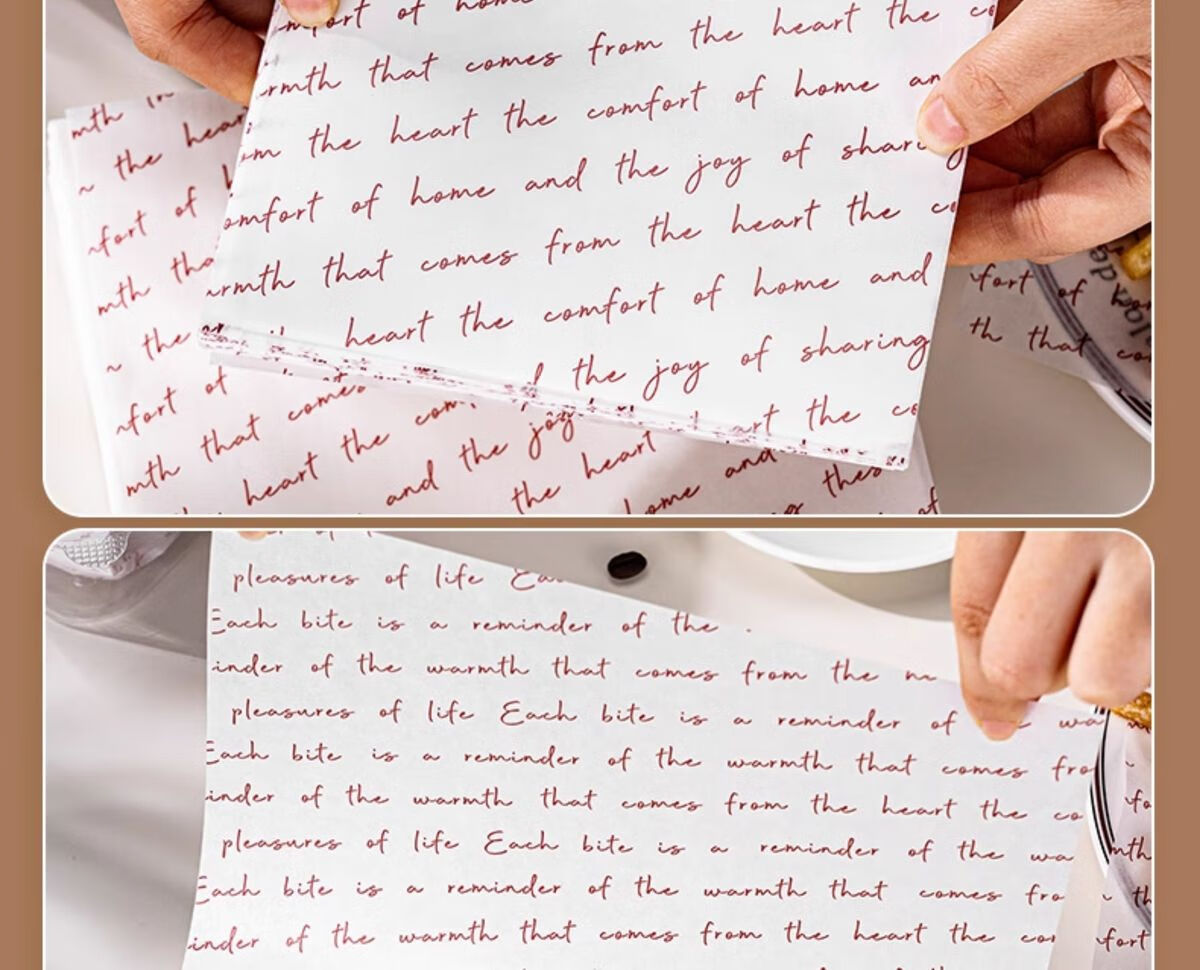 of home
that comes from the heart the
the heart the comfort of home
of home and the joy of
that comes from the heart the
heart the comfort of home and
the joy of sharing
the
the heart
of
the
of
that comes
heart the
and the joy
the heart
home and
of
that
pleasures of life
Each bite is a reminder of the
of the warmth that comes from the
pleasures of life Each bite is a reminder of
Each bite is a reminder of the warmth that comes
of the warmth that comes from the heart the
pleasures of life Each bite is a reminder of the
Each bite is a reminder of the warmth that comes
of the warmth that comes from the heart the